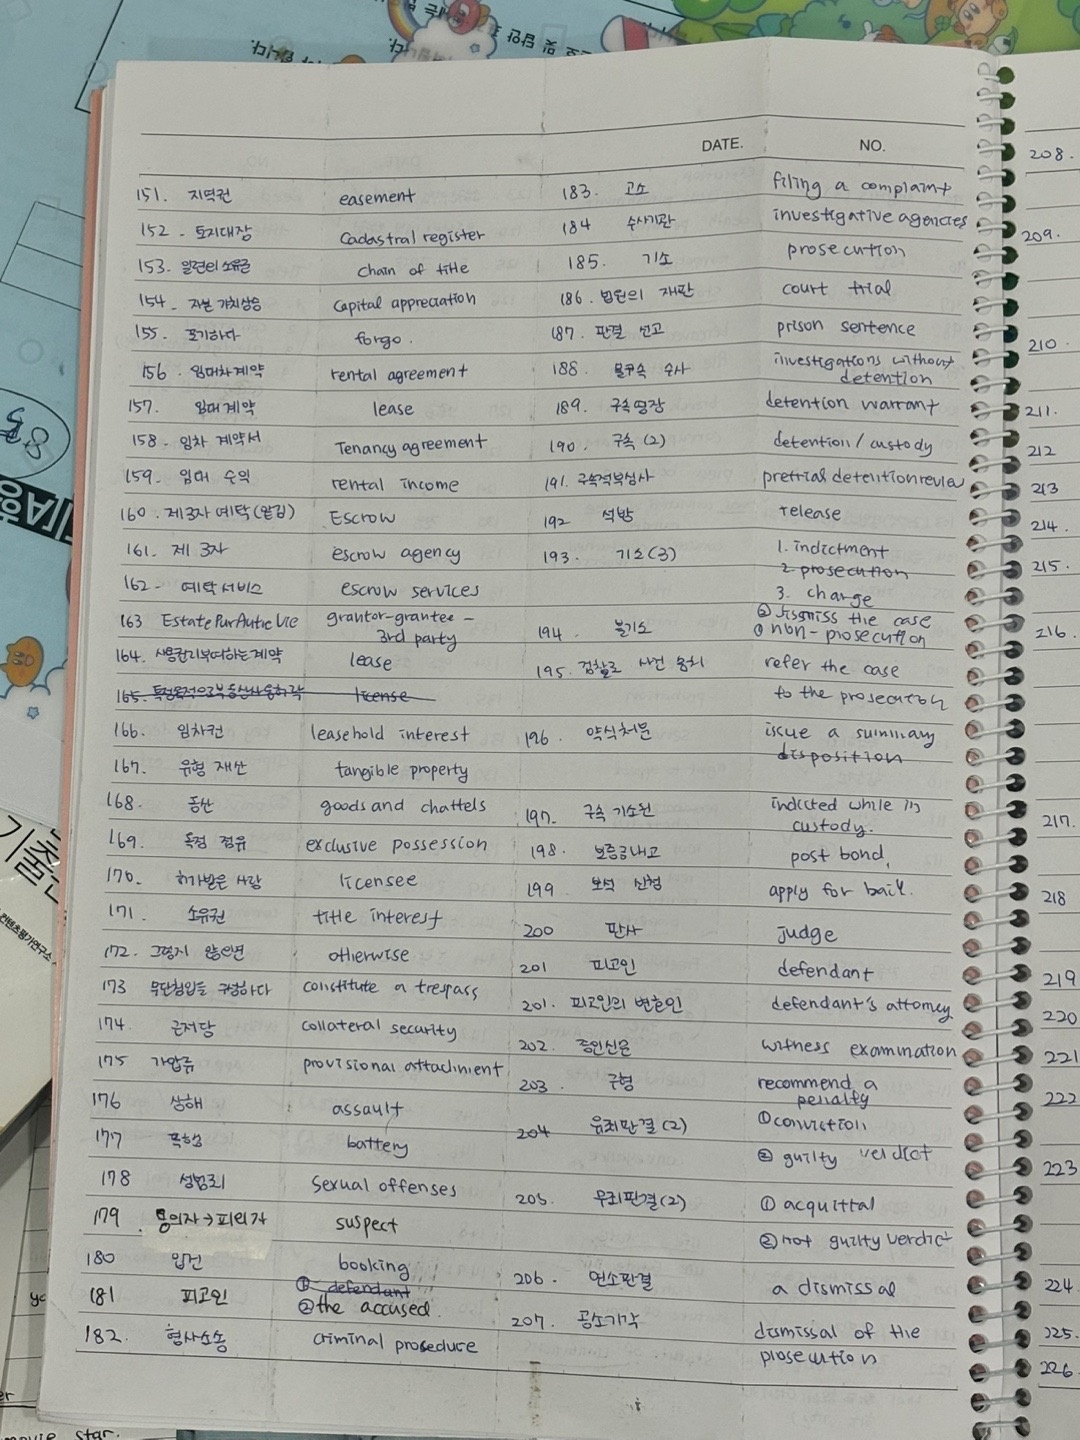 DATE.
NO.
151. 지역권 easement
152. 토지대장 Cadastral register
153. 일련의 소유권 Chain of title
154. 자본 가치상승 Capital appreciation
155. 포기하다 forgo.
156. 임대차계약 rental agreement
157. 임대계약 lease
158. 임차 계약서 Tenancy agreement
159. 임대 수익 rental income
160. 제3자 예탁(맡김) Escrow
161. 제 3자 escrow agency
162- 예탁서비스 escrow services
163 Estate Pur Autre Vie grantor-grantee-
3rd party
164. 사용권리부여하는계약 lease
165. 특정목적으로부동산사용허락 license
166. 임차권 leasehold interest
167. 유형 재산 tangible property
168. 동산 goods and chattels
169. 독점 점유 exclusive possession
170. 허가받은 사람 licensee
171. 소유권 title interest
172. 그렇지 않으면 otherwise
173 무단침입을 구성하다 constitute a trespass
174 근저당 collateral security
175 가압류 provisional attachment
176 상해 assault
177 폭행 battery
178 성범죄 sexual offenses
179. 용의자→피의자 suspect
180 입건 booking
181 피고인 ① defendant
② the accused.
182. 형사소송 criminal prosedure
183. 고소 filing a complaint
184 수사기관 investigative agencies
185. 기소 prosecution
186. 법원의 재판 court trial
187. 판결 선고 prison sentence
188. 불구속 수사 investigations without
detention
189. 구속영장 detention warrant
190. 구속(2) detention / custody
191. 구속적부심사 pretrial detention review
192 석방 release
193. 기소(3) 1. indictment
2. prosecution
3. charge
② dismiss the case
194. 불기소 ① non-prosecution
195. 검찰로 사건 송치 refer the case
to the prosecution
196. 약식처분 issue a summary
disposition
197. 구속 기소된 indicted while in
custody.
198. 보증금내고 post bond,
199 보석 신청 apply for bail.
200 판사 judge
201 피고인 defendant
201. 피고인의 변호인 defendant's attorney
202. 증인신문 witness examination
203. 구형 recommend a
penalty
204 유죄판결(2) ① conviction
② guilty verdict
205. 무죄판결(2) ① acquittal
② not guilty verdict
206. 면소판결 a dismissal
207. 공소기각 dismissal of the
prosecution
208.
209.
210.
211.
212
213
214.
215.
216.
217.
218
219
220
221
222
223
224
225.
226.
movie star.